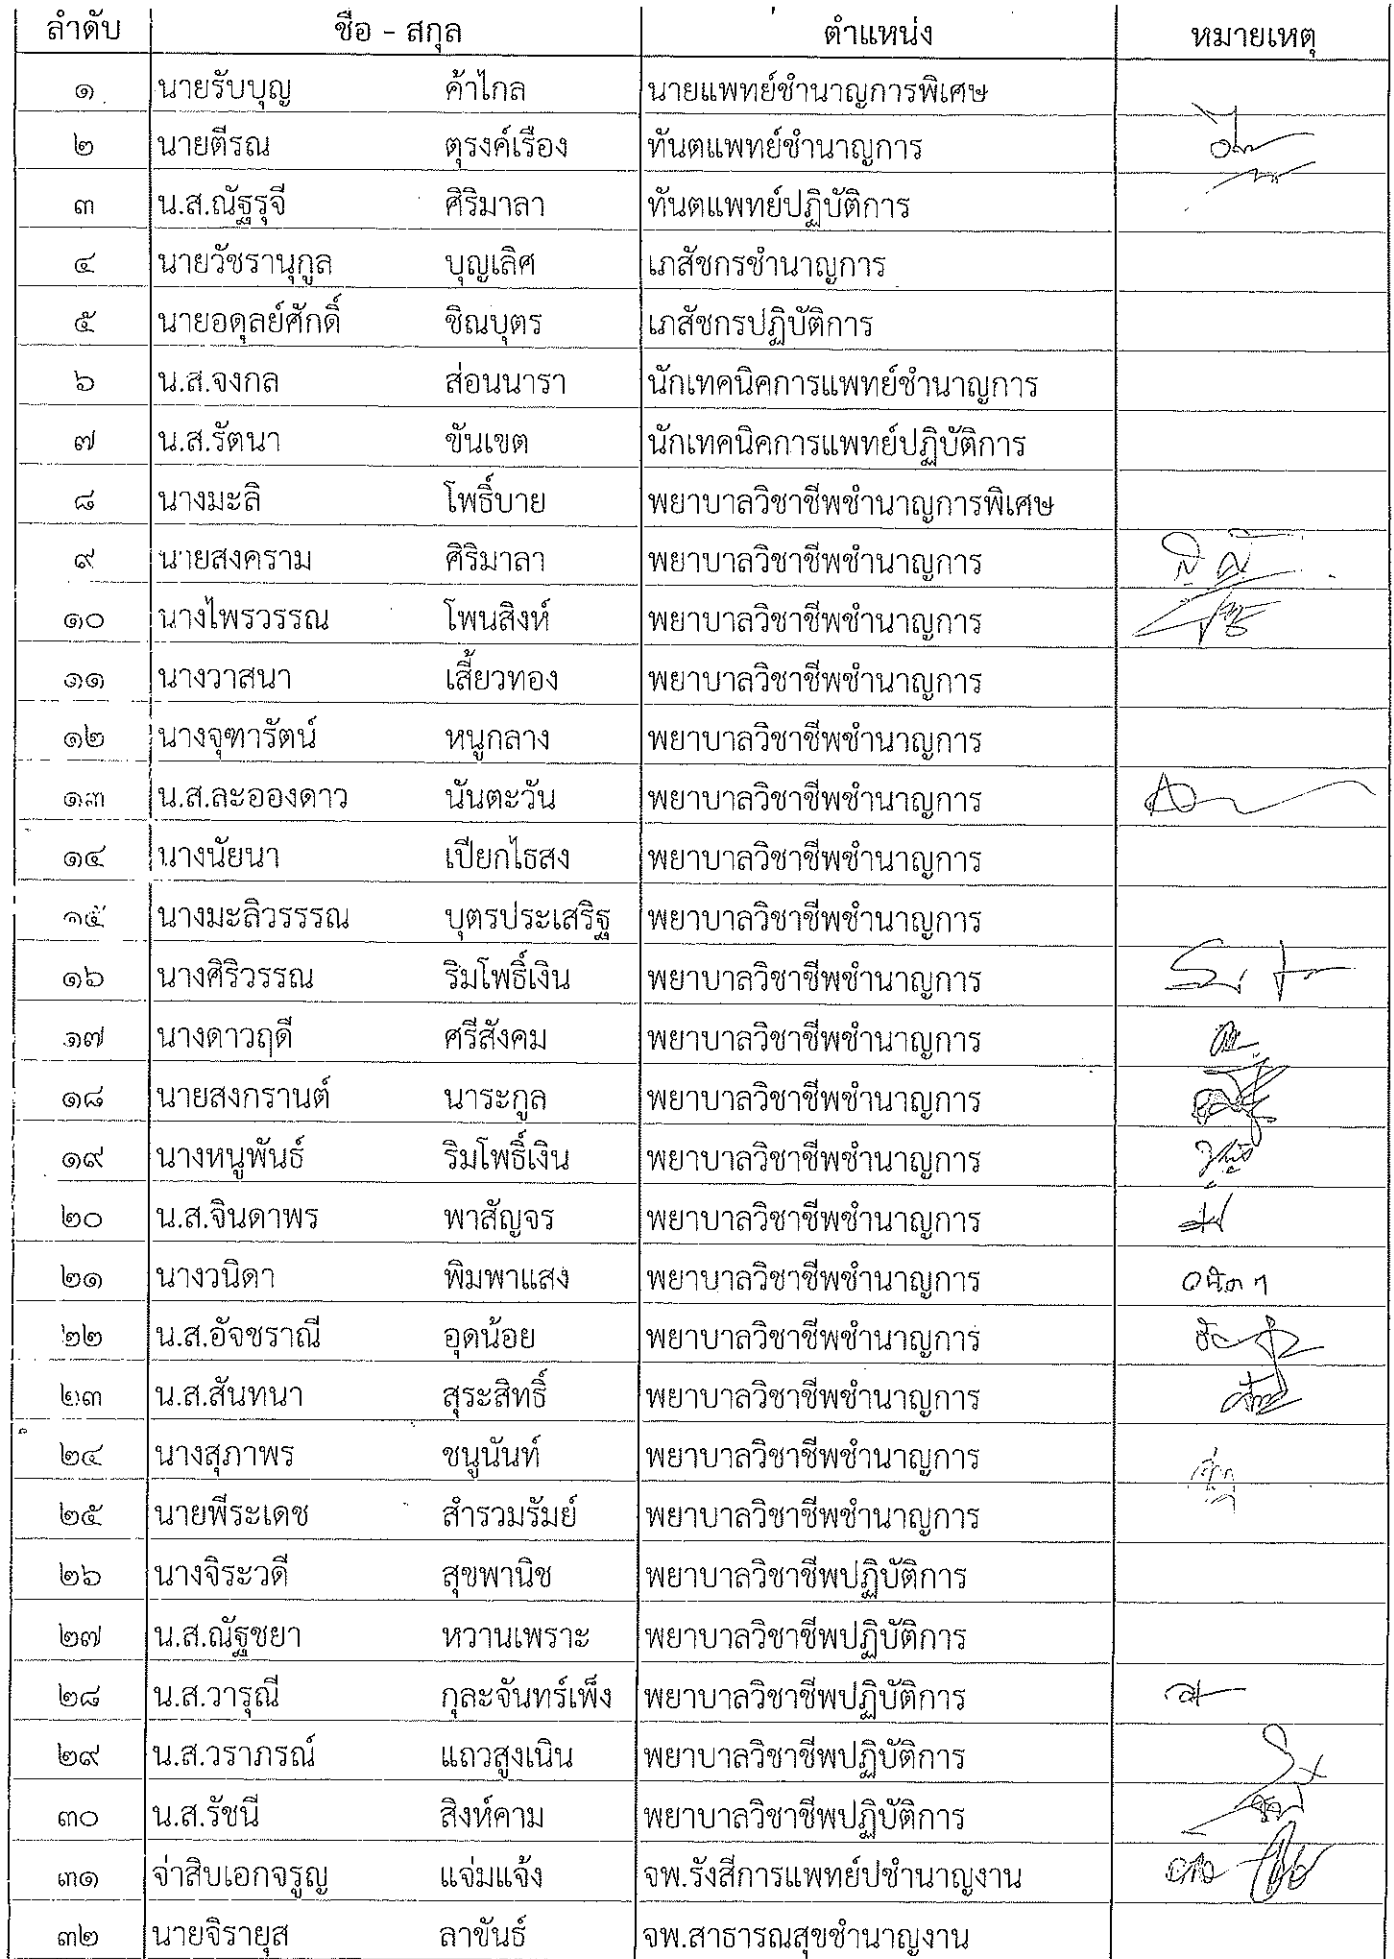 ลำดับ ชื่อ - สกุล ตำแหน่ง หมายเหตุ
๑ นายรับบุญ ค้าไกล นายแพทย์ชำนาญการพิเศษ
๒ นายตีรณ ตุรงค์เรือง ทันตแพทย์ชำนาญการ
๓ น.ส.ณัฐรุจี ศิริมาลา ทันตแพทย์ปฏิบัติการ
๔ นายวัชรานุกูล บุญเลิศ เภสัชกรชำนาญการ
๕ นายอดุลย์ศักดิ์ ชิณบุตร เภสัชกรปฏิบัติการ
๖ น.ส.จงกล ส่อนนารา นักเทคนิคการแพทย์ชำนาญการ
๗ น.ส.รัตนา ขันเขต นักเทคนิคการแพทย์ปฏิบัติการ
๘ นางมะลิ โพธิ์บาย พยาบาลวิชาชีพชำนาญการพิเศษ
๙ นายสงคราม ศิริมาลา พยาบาลวิชาชีพชำนาญการ
๑๐ นางไพรวรรณ โพนสิงห์ พยาบาลวิชาชีพชำนาญการ
๑๑ นางวาสนา เสี้ยวทอง พยาบาลวิชาชีพชำนาญการ
๑๒ นางจุฑารัตน์ หนูกลาง พยาบาลวิชาชีพชำนาญการ
๑๓ น.ส.ละอองดาว นันตะวัน พยาบาลวิชาชีพชำนาญการ
๑๔ นางนัยนา เปียกไธสง พยาบาลวิชาชีพชำนาญการ
๑๕ นางมะลิวรรรณ บุตรประเสริฐ พยาบาลวิชาชีพชำนาญการ
๑๖ นางศิริวรรณ ริมโพธิ์เงิน พยาบาลวิชาชีพชำนาญการ
๑๗ นางดาวฤดี ศรีสังคม พยาบาลวิชาชีพชำนาญการ
๑๘ นายสงกรานต์ นาระกูล พยาบาลวิชาชีพชำนาญการ
๑๙ นางหนูพันธ์ ริมโพธิ์เงิน พยาบาลวิชาชีพชำนาญการ
๒๐ น.ส.จินดาพร พาสัญจร พยาบาลวิชาชีพชำนาญการ
๒๑ นางวนิดา พิมพาแสง พยาบาลวิชาชีพชำนาญการ วนิดา
๒๒ น.ส.อัจชราณี อุดน้อย พยาบาลวิชาชีพชำนาญการ
๒๓ น.ส.สันทนา สุระสิทธิ์ พยาบาลวิชาชีพชำนาญการ
๒๔ นางสุภาพร ชนูนันท์ พยาบาลวิชาชีพชำนาญการ
๒๕ นายพีระเดช สำรวมรัมย์ พยาบาลวิชาชีพชำนาญการ
๒๖ นางจิระวดี สุขพานิช พยาบาลวิชาชีพปฏิบัติการ
๒๗ น.ส.ณัฐชยา หวานเพราะ พยาบาลวิชาชีพปฏิบัติการ
๒๘ น.ส.วารุณี กุละจันทร์เพ็ง พยาบาลวิชาชีพปฏิบัติการ
๒๙ น.ส.วราภรณ์ แถวสูงเนิน พยาบาลวิชาชีพปฏิบัติการ
๓๐ น.ส.รัชนี สิงห์คาม พยาบาลวิชาชีพปฏิบัติการ
๓๑ จ่าสิบเอกจรูญ แจ่มแจ้ง จพ.รังสีการแพทย์ปชำนาญงาน
๓๒ นายจิรายุส ลาขันธ์ จพ.สาธารณสุขชำนาญงาน